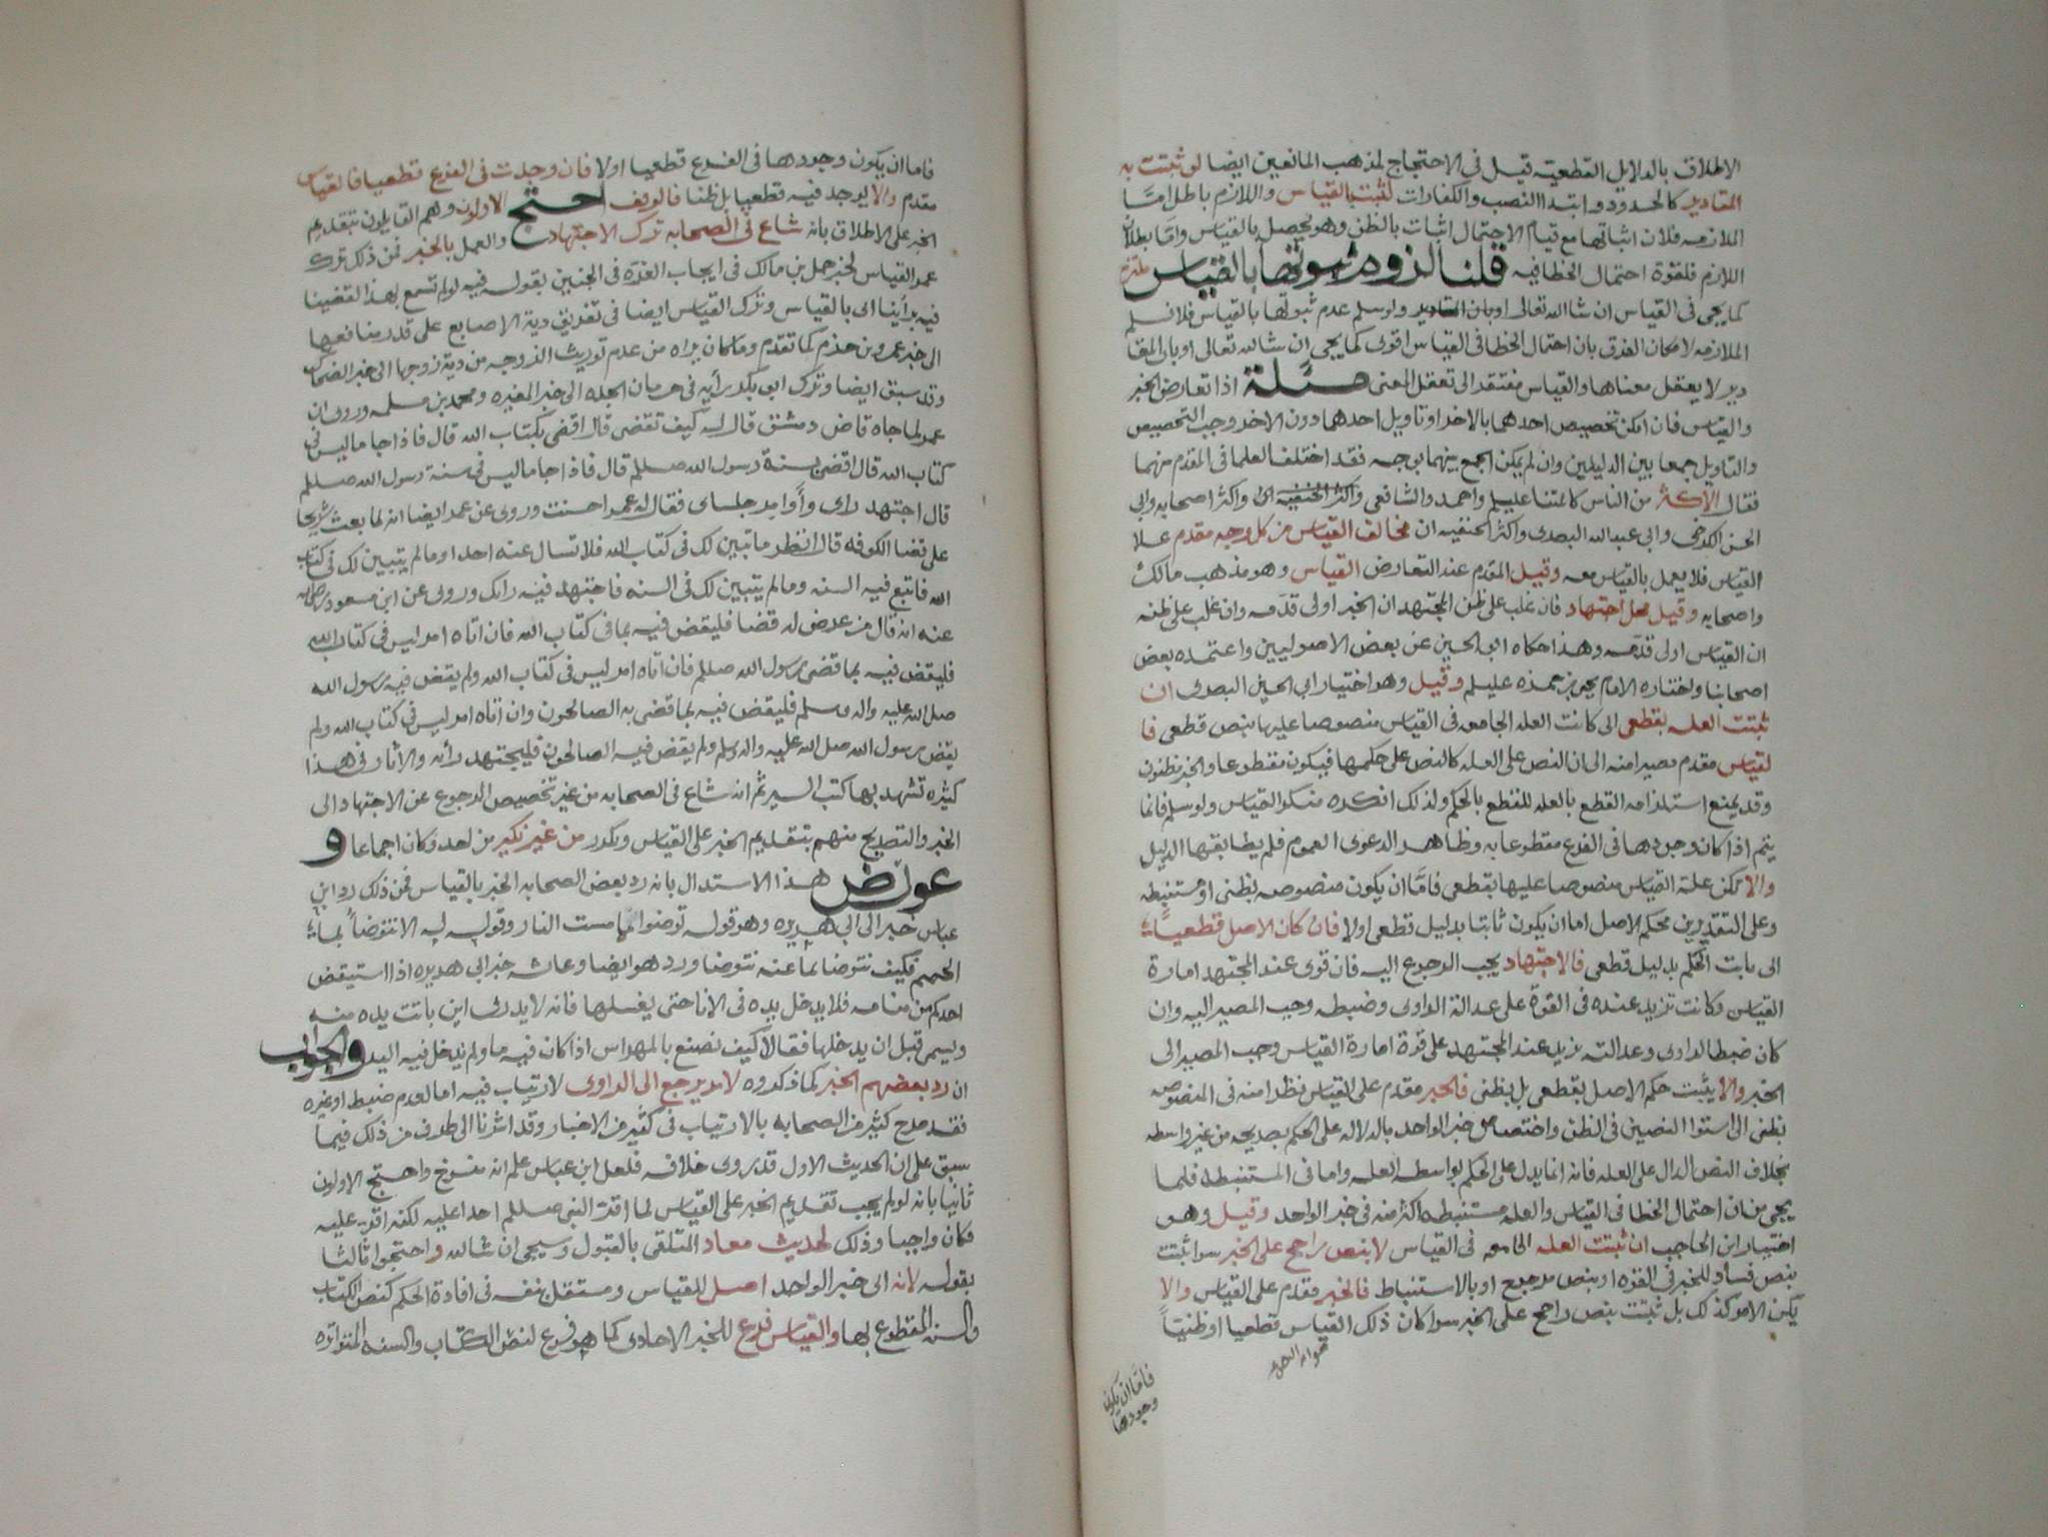 الاطلاق بالدلايل القطعيه قيل فى الاحتجاج لمذهب المانعين ايضا لو ثبتت به
المقادير كالحدود وابتداا النصب والكفارات لثبتت بالقياس واللازم باطل امَّا
الملازمه فلان اثباتها مع قيام الاحتمال اثبات بالظن وهو يحصل بالقياس وامَّا بطلان
اللازم فلقوة احتمال الخطا فيه قلنا لزوم ثبوتها بالقياس ملتزم
كما يجى فى القياس ان شا الله تعالى او بان المقادير ولو سلم عدم ثبوتها بالقياس فلا نسلم
الملازمه لامكان الفرق بان احتمال الخطا فى القياس اقوى كما يجى ان شا الله تعالى او بان المقا
دير لا يعقل معناها والقياس مفتقد الى تعقل المعنى مسئلة اذا تعارض الخبر
والقياس فان امكن تخصيص احدهما بالاخر او تاويل احدهما دون الاخر وجب التخصيص
والتاويل جمعا بين الدليلين وان لم يمكن الجمع بينهما بوجه فقد اختلف العلما فى المقدم منهما
فقال الاكثر من الناس كائمتنا عليلم واحمد والشافعى واكثر اصحابه وابى
الحسن الكرخى وابى عبد الله البصرى واكثر الحنفيه ان مخالف القياس من كل وجه مقدم علا
القياس فلا يعمل بالقياس معه وقيل المقدم عند التعارض القياس وهو مذهب مالك
واصحابه وقيل محل اجتهاد فان غلب على ظن المجتهد ان الخبر اولى قدَّمه وان غلب على ظنه
ان القياس اولى قدَّمه وهذا حكاه ابو الحسين عن بعض الاصوليين واعتمده بعض
اصحابنا واختاره الامام يحيى بن حمزه عليلم وقيل وهو اختيار ابى الحسين البصرى ان
ثبتت العله بقطعى اى كانت العله الجامعه فى القياس منصوصا عليها بنص قطعى فا
لقياس مقدم مصيرا منه الى ان النص على العله كالنص على حكمها فيكون مقطوعا والخبر مظنون
وقد يمنع استلزامه القطع بالعله للقطع بالحكم ولذلك انكره منكروا القياس ولو سلم فانما
يتم اذا كان وجودها فى الفرع مقطوعا به وظاهر الدعوى العموم فلم يطابقها الدليل
والا تكن علة القياس منصوصا عليها بقطعى فامَّا ان يكون منصوصه بظنى او مستنبطه
وعلى التقديرين فحكم الاصل اما ان يكون ثابتا بدليل قطعى اولا فان كان الاصل قطعيا
اى ثابت الحكم بدليل قطعى فالاجتهاد يجب الرجوع اليه فان قوى عند المجتهد امارة
القياس وكانت تزيد عنده فى القوة على عدالة الراوى وضبطه وجب المصير اليه وان
كان ضبط الراوى وعدالته يزيد عند المجتهد على قوة امارة القياس وجب المصير الى
الخبر والا يثبت حكم الاصل بقطعى بل بظنى فالخبر مقدم على القياس نظرا منه فى المنصوصه
بظنى الى استوا النصين فى الظن واختصاص خبر الواحد بالدلاله على الحكم بصريحه من غير واسطه
بخلاف النص الدال على العله فانه انما يدل على الحكم بواسطه العله واما فى المستنبطه فلما
يجى من ان احتمال الخطا فى القياس والعله مستنبطه اكثر منه فى خبر الواحد وقيل وهو
اختيار ابن الحاجب ان ثبتت العله الجامعه فى القياس لا بنص راجح على الخبر سوا ثبتت
بنص مساو للخبر فى القوه او بنص مرجوح او بالاستنباط فالخبر مقدم على القياس والا
يكن الامر كذلك بل ثبتت بنص راجح على الخبر سوا كان ذلك القياس قطعيا او ظنيّاً
فامَّا ان يكون
وجودها
فاما ان يكون وجودها فى الفرع قطعيا اولا فان وجدت فى الفرع قطعيا فالقياس
مقدم والا يوجد فيه قطعيا بل ظنا فالوقف احتج الاولون وهم القايلون بتقديم
الخبر على الاطلاق بانه شاع فى الصحابه ترك الاجتهاد والعمل بالخبر فمن ذلك ترك
عمر القياس لخبر حمل بن مالك فى ايجاب الغرّه فى الجنين بقوله فيه لو لم تسمع بهذا لقضينا
فيه برأينا اى بالقياس وترك القياس ايضا فى تفريق دية الاصابع على قدر منافعها
الى خبر عمرو بن حزم كما تقدم وما كان يراه من عدم توريث الزوجه من دية زوجها الى خبر الضحاك
وقد سبق ايضا وترك ابو بكر رأيه فى حرمان الجده الى خبر المغيره ومحمد بن مسلمه وروى ان
عمر لما جاه قاض دمشق قال له كيف تقضى قال اقضى بكتاب الله قال فاذا جا ما ليس فى
كتاب الله قال اقضى بسنة رسول الله صللم قال فاذا جا ما ليس فى سنة رسول الله صللم
قال اجتهد راى وأوامر جلساى فقال له عمر احسنت وروى عن عمر ايضا انه لما بعث شريحا
على قضا الكوفه قال انظر ما تبين لك فى كتاب الله فلا تسال عنه احدا وما لم يتبين لك فى كتاب
الله فاتبع فيه السنه وما لم يتبين لك فى السنه فاجتهد فيه رايك وروى عن ابن مسعود رضى الله
عنه انه قال من عرض له قضا فليقض فيه بما فى كتاب الله فان اتاه امر ليس فى كتاب الله
فليقض فيه بما قضى رسول الله صللم فان اتاه امر ليس فى كتاب الله ولم يقض فيه رسول الله
صلى الله عليه واله وسلم فليقض فيه بما قضى به الصالحون وان اتاه امر ليس فى كتاب الله ولم
يقض رسول الله صلى الله عليه واله وسلم ولم يقض فيه الصالحون فليجتهد رأيه والاثار فى هذا
كثيره تشهد بها كتب السير ثم انه شاع فى الصحابه من غير تخصيص الرجوع عن الاجتهاد الى
الخبر والتصريح منهم بتقديم الخبر على القياس وتكرر من غير نكير من احد فكان اجماعا و
عورض هذا الاستدلال بانه رد بعض الصحابه الخبر بالقياس فمن ذلك رد ابن
عباس خبر ابى هريره وهو قوله توضئوا مما مست النار وقوله له الا نتوضأ بماء
الحميم فكيف نتوضا بما عنه نتوضا ورد هو ايضا وعائشه خبر ابى هريره اذا استيقض
احدكم من منامه فلا يدخل يده فى الانا حتى يغسلها فانه لا يدرى اين باتت يده منه
ويسمى قبل ان يدخلها فقالا كيف نصنع بالمهراس اذا كان فيه ما ولم ندخل فيه اليد والجواب
ان رد بعضهم الخبر كما ذكروه لامر يرجع الى الراوى لارتياب فيه اما لعدم ضبط او غيره
فقد صرح كثير من الصحابه بالارتياب فى كثير من الاخبار وقد اشرنا الى طرف من ذلك فيما
سبق على ان الحديث الاول قد روى خلافه فلعل ابن عباس علم انه منسوخ واحتج الاولون
ثانيا بانه لو لم يجب تقديم الخبر على القياس لما اقر النبى صللم احدا عليه لكنه اقر عليه
فكان واجبا وذلك لحديث معاذ المتلقى بالقبول وسيجى ان شا الله واحتجوا ثالثا
بقوله لانه اى خبر الواحد اصل للقياس ومستقل بنفسه فى افادة الحكم كنص الكتاب
والسنه المقطوع بها والقياس فرع للخبر الاحادى كما هو فرع لنص الكتاب والسنه المتواتره